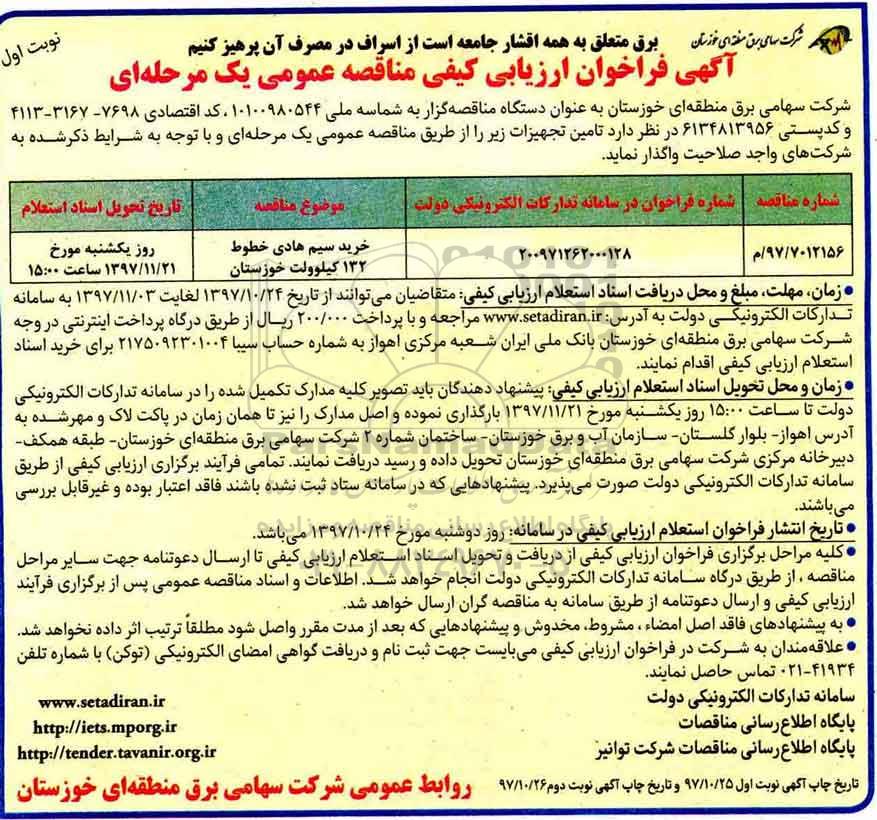 شرکت سهامی برق منطقه‌ای خوزستان
برق متعلق به همه اقشار جامعه است از اسراف در مصرف آن پرهیز کنیم
نوبت اول
آگهی فراخوان ارزیابی کیفی مناقصه عمومی یک مرحله‌ای
شرکت سهامی برق منطقه‌ای خوزستان به عنوان دستگاه مناقصه‌گزار به شماسه ملی ۱۰۱۰۰۹۸۰۵۴۴ ، کد اقتصادی ۷۶۹۸- ۳۱۶۷-۴۱۱۳
و کدپستی ۶۱۳۴۸۱۳۹۵۶ در نظر دارد تامین تجهیزات زیر را از طریق مناقصه عمومی یک مرحله‌ای و با توجه به شرایط ذکرشده به
شرکت‌های واجد صلاحیت واگذار نماید.
شماره مناقصه | شماره فراخوان در سامانه تدارکات الکترونیکی دولت | موضوع مناقصه | تاریخ تحویل اسناد استعلام
۹۷/۷۰۱۲۱۵۶/م | ۲۰۰۹۷۱۲۶۲۰۰۰۱۲۸ | خرید سیم هادی خطوط | روز یکشنبه مورخ
۱۳۲ کیلوولت خوزستان | ۱۳۹۷/۱۱/۲۱ ساعت ۱۵:۰۰
• زمان، مهلت، مبلغ و محل دریافت اسناد استعلام ارزیابی کیفی: متقاضیان می‌توانند از تاریخ ۱۳۹۷/۱۰/۲۴ لغایت ۱۳۹۷/۱۱/۰۳ به سامانه
تدارکات الکترونیکی دولت به آدرس: www.setadiran.ir مراجعه و با پرداخت ۲۰۰/۰۰۰ ریال از طریق درگاه پرداخت اینترنتی در وجه
شرکت سهامی برق منطقه‌ای خوزستان بانک ملی ایران شعبه مرکزی اهواز به شماره حساب سیبا ۲۱۷۵۰۹۲۳۰۱۰۰۴ برای خرید اسناد
استعلام ارزیابی کیفی اقدام نمایند.
• زمان و محل تحویل اسناد استعلام ارزیابی کیفی: پیشنهاد دهندگان باید تصویر کلیه مدارک تکمیل شده را در سامانه تدارکات الکترونیکی
دولت تا ساعت ۱۵:۰۰ روز یکشنبه مورخ ۱۳۹۷/۱۱/۲۱ بارگذاری نموده و اصل مدارک را نیز تا همان زمان در پاکت لاک و مهرشده به
آدرس اهواز- بلوار گلستان- سازمان آب و برق خوزستان- ساختمان شماره ۲ شرکت سهامی برق منطقه‌ای خوزستان- طبقه همکف-
دبیرخانه مرکزی شرکت سهامی برق منطقه‌ای خوزستان تحویل داده و رسید دریافت نمایند. تمامی فرآیند برگزاری ارزیابی کیفی از طریق
سامانه تدارکات الکترونیکی دولت صورت می‌پذیرد. پیشنهادهایی که در سامانه ستاد ثبت نشده باشند فاقد اعتبار بوده و غیرقابل بررسی
می‌باشند.
• تاریخ انتشار فراخوان استعلام ارزیابی کیفی در سامانه: روز دوشنبه مورخ ۱۳۹۷/۱۰/۲۴ می‌باشد.
• کلیه مراحل برگزاری فراخوان ارزیابی کیفی از دریافت و تحویل اسناد استعلام ارزیابی کیفی تا ارسال دعوتنامه جهت سایر مراحل
مناقصه ، از طریق درگاه سامانه تدارکات الکترونیکی دولت انجام خواهد شد. اطلاعات و اسناد مناقصه عمومی پس از برگزاری فرآیند
ارزیابی کیفی و ارسال دعوتنامه از طریق سامانه به مناقصه گران ارسال خواهد شد.
• به پیشنهادهای فاقد اصل امضاء ، مشروط، مخدوش و پیشنهادهایی که بعد از مدت مقرر واصل شود مطلقاً ترتیب اثر داده نخواهد شد.
• علاقه‌مندان به شرکت در فراخوان ارزیابی کیفی می‌بایست جهت ثبت نام و دریافت گواهی امضای الکترونیکی (توکن) با شماره تلفن
۰۲۱-۴۱۹۳۴ تماس حاصل نمایند.
سامانه تدارکات الکترونیکی دولت www.setadiran.ir
پایگاه اطلاع‌رسانی مناقصات http://iets.mporg.ir
پایگاه اطلاع‌رسانی مناقصات شرکت توانیر http://tender.tavanir.org.ir
تاریخ چاپ آگهی نوبت اول ۹۷/۱۰/۲۵ و تاریخ چاپ آگهی نوبت دوم ۹۷/۱۰/۲۶
روابط عمومی شرکت سهامی برق منطقه‌ای خوزستان